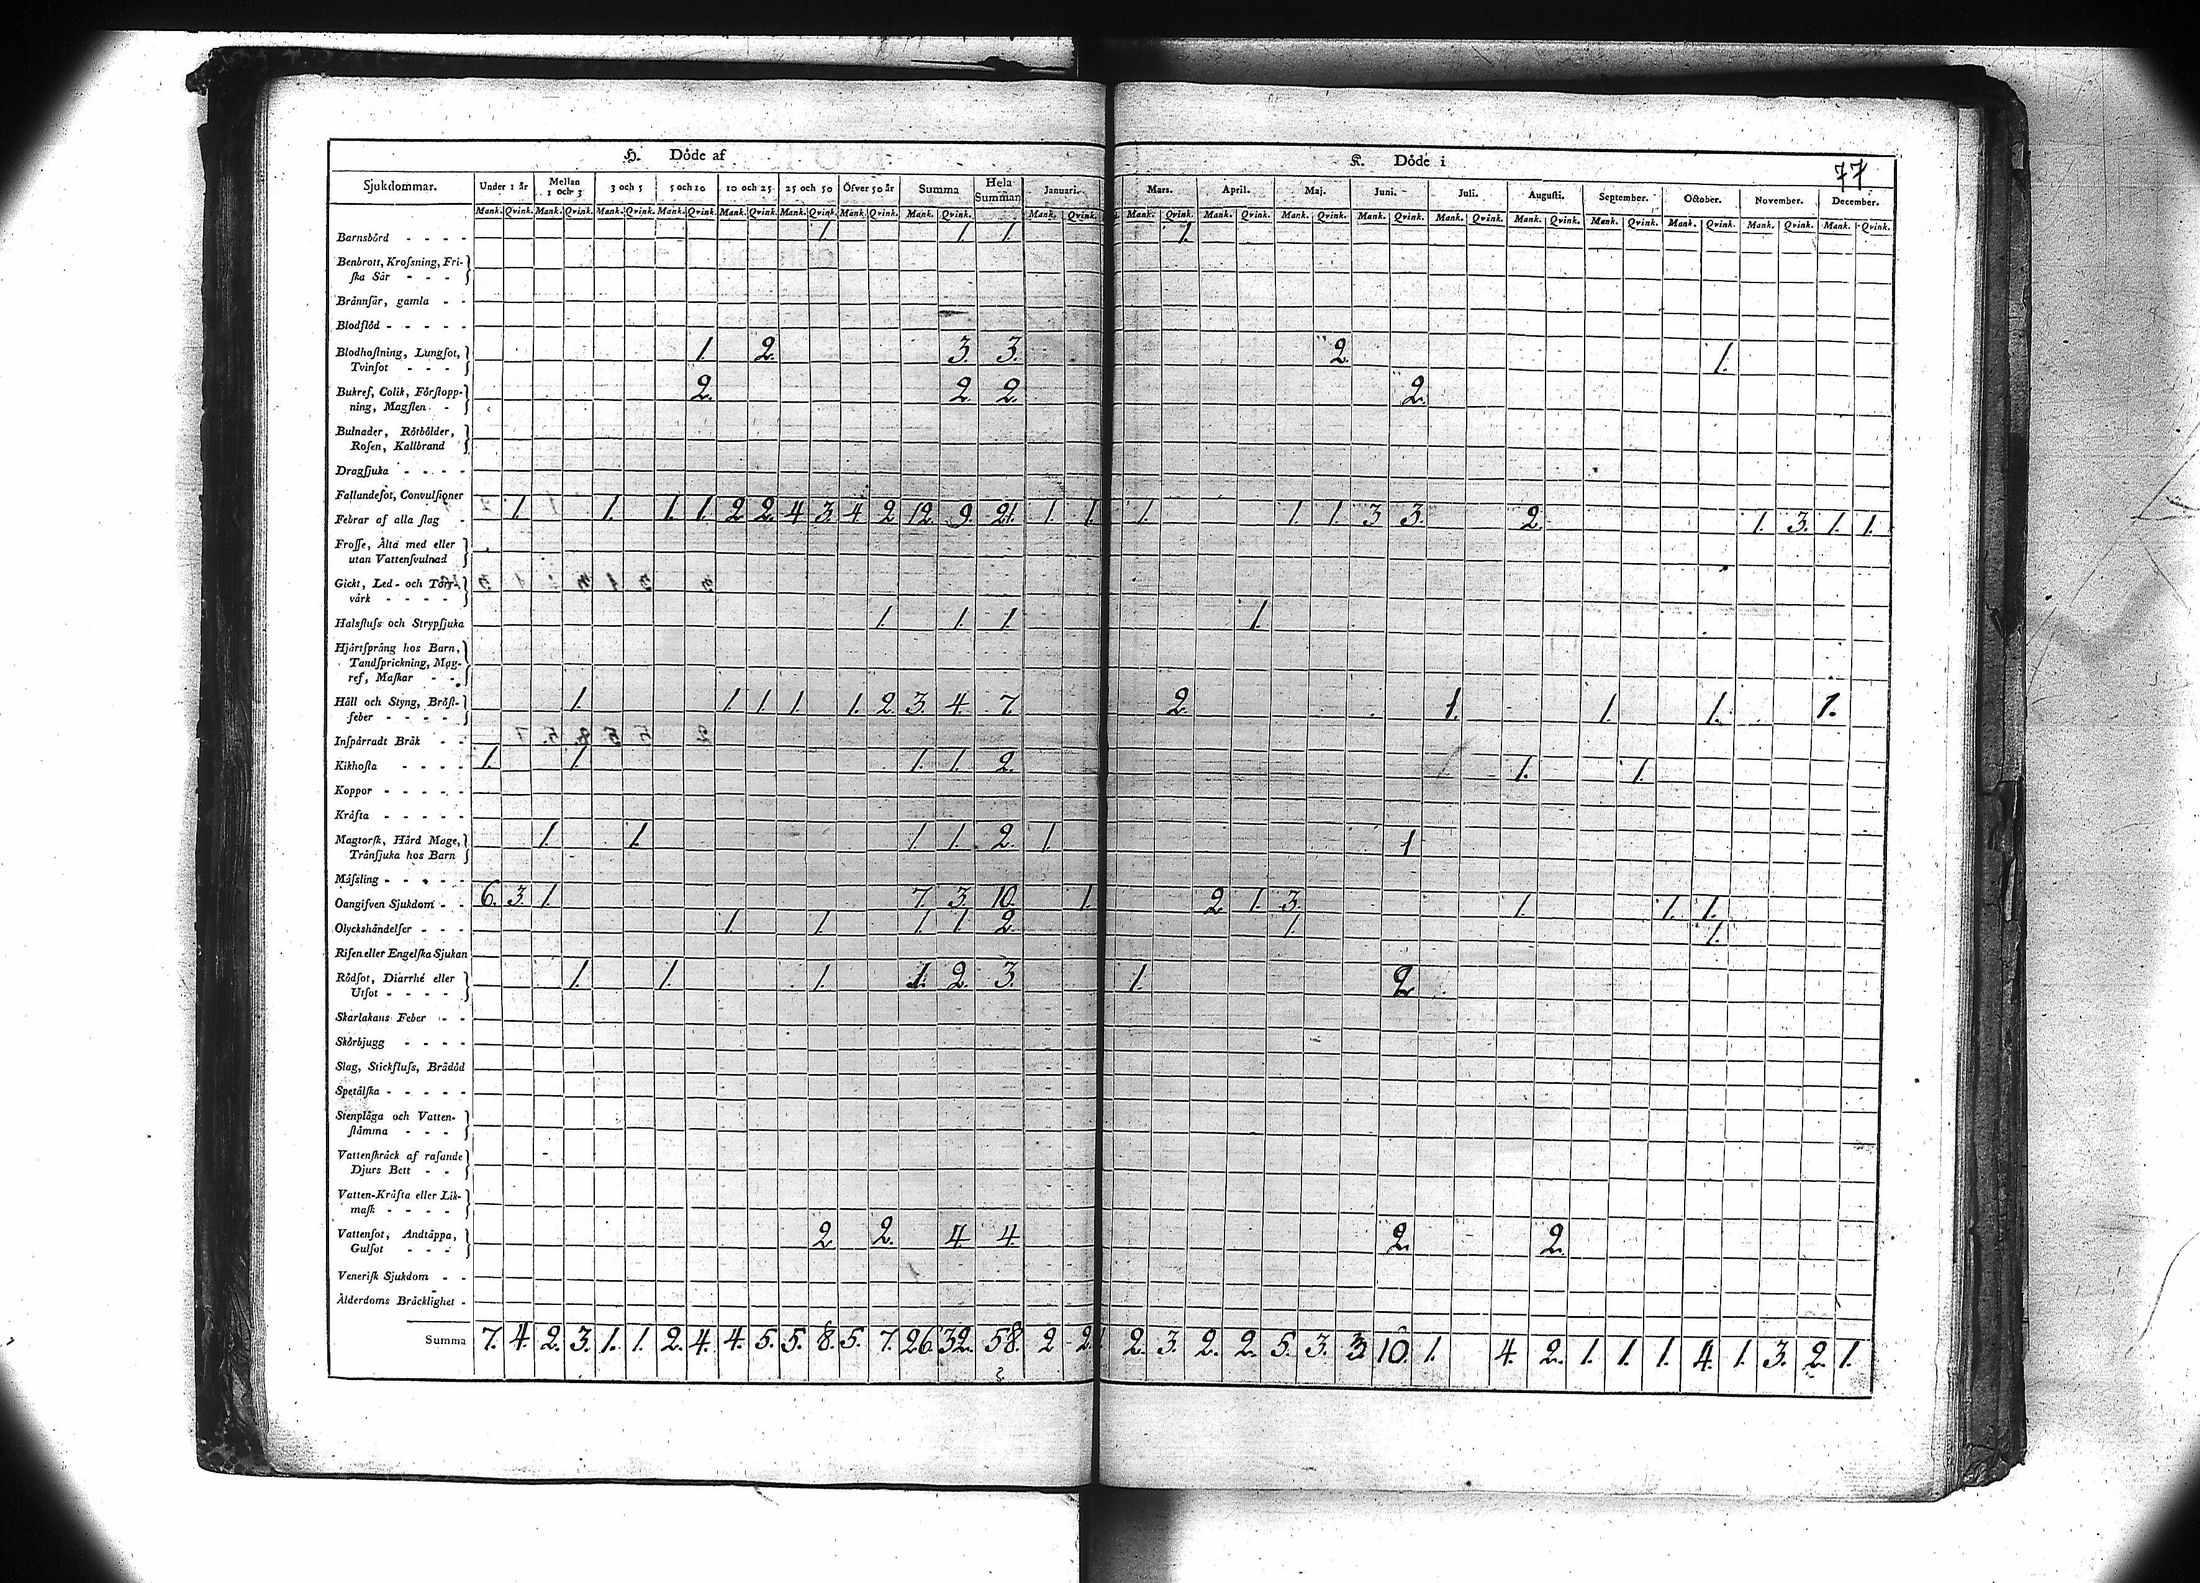 77
H. Döde af K. Döde i
Sjukdommar. Under 1 år Mellan 1 och 3 3 och 5 5 och 10 10 och 25 25 och 50 Öfver 50 år Summa Hela Summan Januari. Mars. April. Maj. Juni. Juli. Augusti. September. October. November. December.
Mank. Qvink. Mank. Qvink. Mank. Qvink. Mank. Qvink. Mank. Qvink. Mank. Qvink. Mank. Qvink. Mank. Qvink. Mank. Qvink. Mank. Qvink. Mank. Qvink. Mank. Qvink. Mank. Qvink. Mank. Qvink. Mank. Qvink. Mank. Qvink. Mank. Qvink. Mank. Qvink. Mank. Qvink.
Barnsbörd - - - - 1 1. 1. 1.
Benbrott, Krosning, Fri-
ska Sår - - -
Brännsår, gamla - -
Blodflöd - - - - -
Blodhostning, Lungsot, 1. 2. 3. 3. 2. 1.
Tvinsot - - -
Bukref, Colik, Förstopp- 2. 2. 2. 2.
ning, Magsten -
Bulnader, Rötbölder,
Rosen, Kallbrand
Dragsjuka - - - -
Fallandesot, Convulsioner
Febrar af alla slag - 1. 1. 1. 1. 2 2. 4 3. 4 2 12. 9. 21. 1. 1. 1. 1. 1. 3 3. 2. 1. 3. 1. 1.
Frosse, Älta med eller
utan Vattensvulnad
Gickt, Led- och Torr-
värk - - - -
Halsfluss och Strypsjuka 1. 1. 1. 1.
Hjärtsprång hos Barn,
Tandsprickning, Mag-
ref, Maskar - -
Håll och Styng, Bröst- 1. 1. 1 1. 1. 2. 3. 4. 7. 2. 1. 1. 1. 1.
feber - - - -
Inspärradt Bråk - -
Kikhosta - - - - 1. 1. 1. 1. 2. 1. 1.
Koppor - - - - -
Kräfta - - - - -
Magtorsk, Hård Mage, 1. 1. 1. 1. 2. 1. 1
Tränsjuka hos Barn
Mässling - - - - -
Oangifven Sjukdom - - 6. 3. 1. 7. 3. 10. 1. 2. 1. 3. 1. 1. 1.
Olyckshändelser - - - 1. 1. 1. 1. 2. 1. 1.
Risen eller Engelska Sjukan
Rödsot, Diarrhé eller 1. 1. 1. 1. 2. 3. 1. 2
Utsot - - - -
Skarlakans Feber - -
Skörbjugg - - - -
Slag, Stickfluss, Brådöd
Spetälska - - - - -
Stenplåga och Vatten-
stämma - - -
Vattenskräck af rasande
Djurs Bett - -
Vatten-Kräfta eller Lik-
mask - - - -
Vattensot, Andtäppa, 2 2. 4 4. 2. 2.
Gulsot - - -
Venerisk Sjukdom - -
Ålderdoms Bräcklighet -
Summa 7. 4. 2. 3. 1. 1. 2. 4. 4. 5. 5. 8. 5. 7. 26. 32. 58. 2 2. 2. 3. 2. 2. 5. 3. 3 10. 1. 4. 2. 1. 1. 1. 4. 1. 3. 2 1.